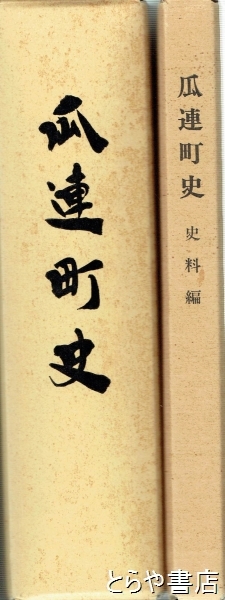 瓜連町史
瓜連町史
史料編
とらや書店